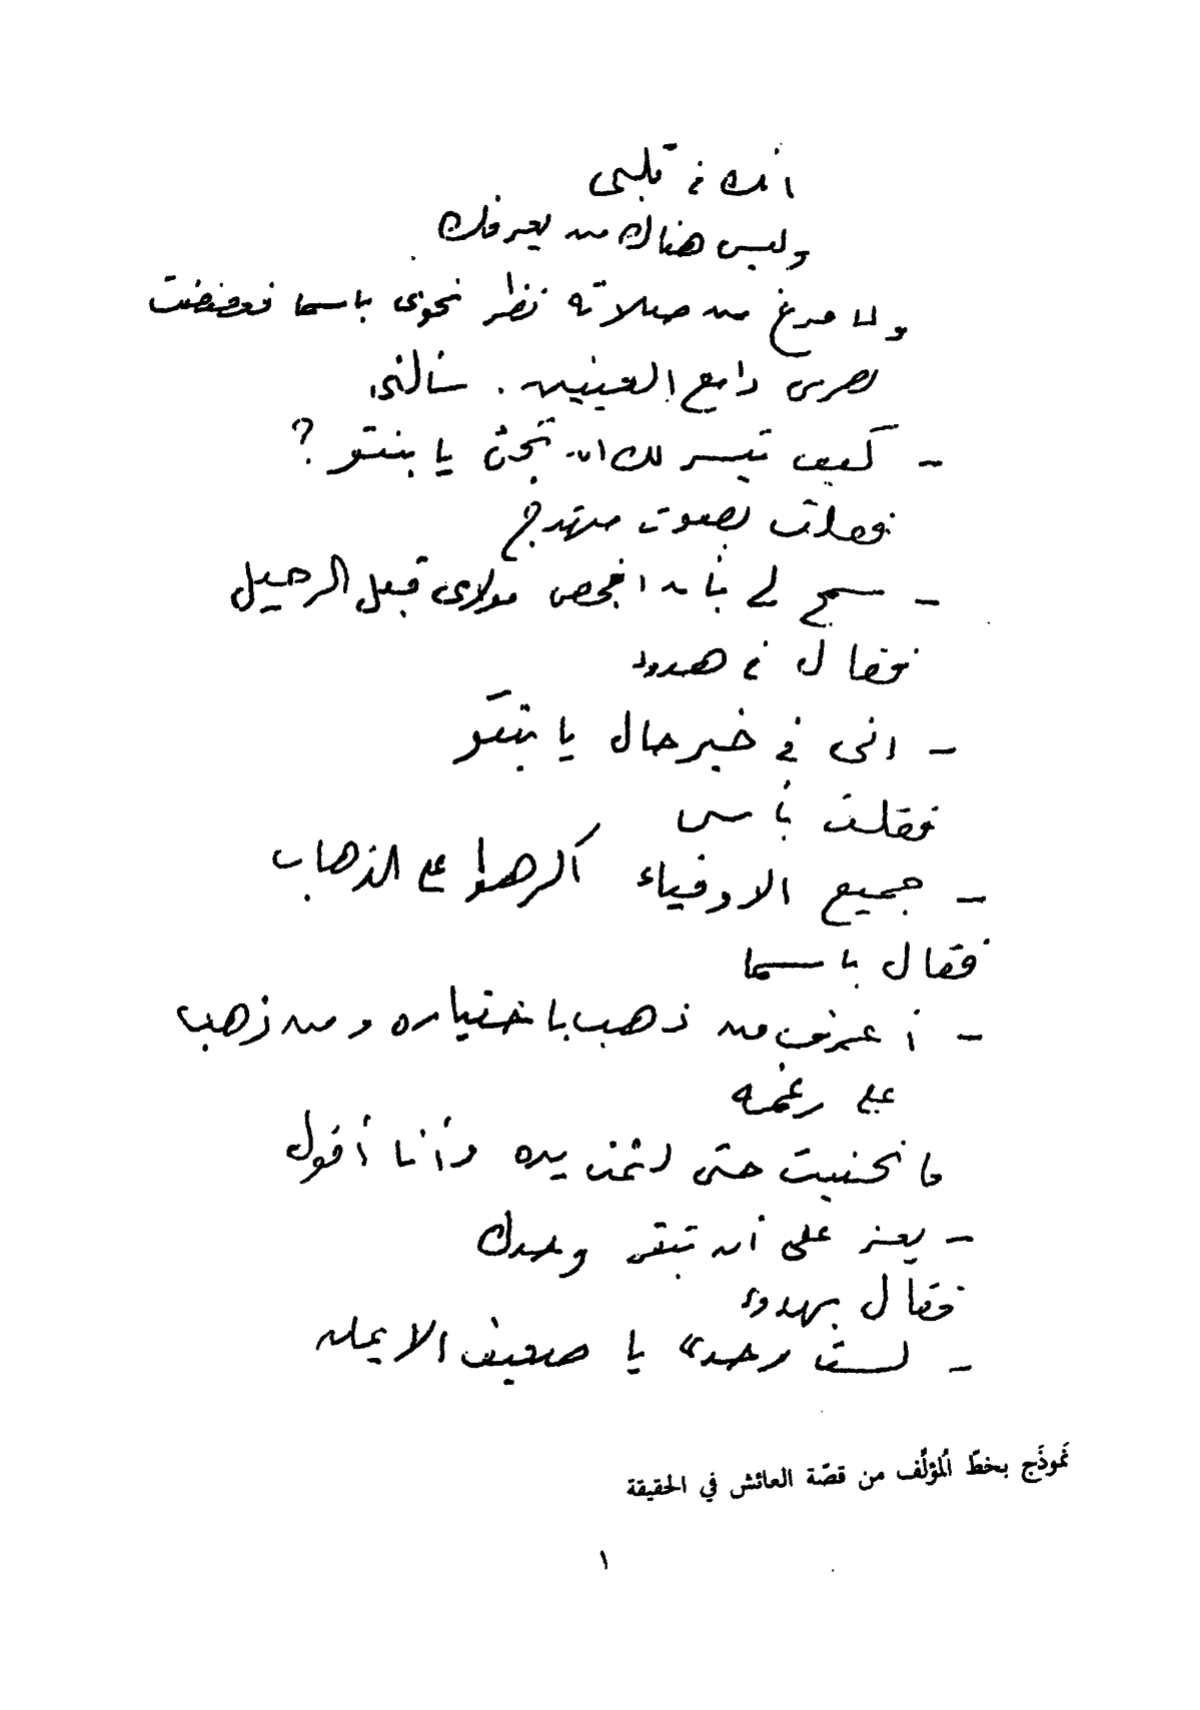 انك في قلبي
وليس هناك من يعرفك
ولما فرغ من صلاته نظر نحوى باسما فغضضت
بصرى دامع العينين . سألنى
- كيف تيسر لك ان تجىء يا بنتو ؟
فقلت بصوت متهدج
- سمح لى بأن افحص مولاى قبل الرحيل
فقال في هدوء
- انى في خير حال يا بنتو
فقلت بأسى
- جميع الاوفياء اكرهوا على الذهاب
فقال باسما
- أعرف من ذهب باختياره ومن ذهب
على رغمه
فانحنيت حتى لثمت يده وأنا أقول
- يعز على أن تبقى وحدك
فقال بهدوء
- لست وحدى يا ضعيف الايمان
نَموذَج بخطّ المُؤلّف من قصّة العائش في الحقيقة
١